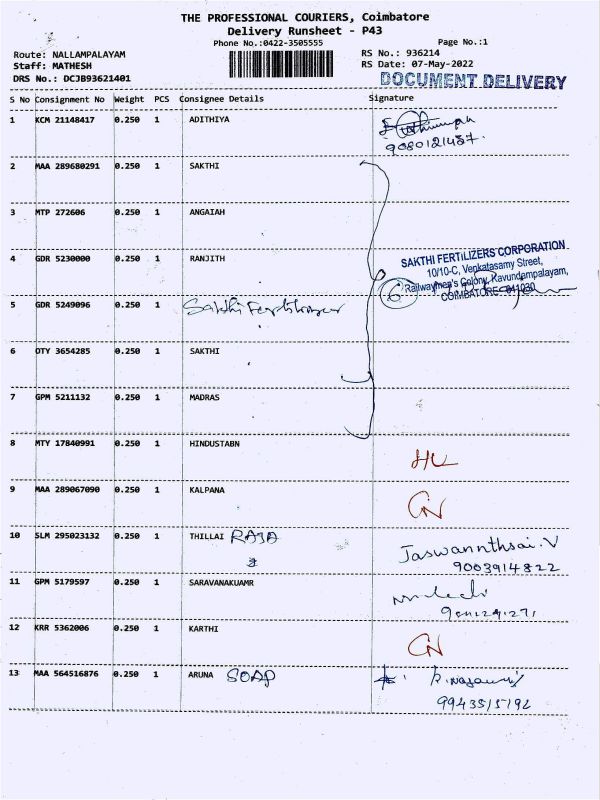 THE PROFESSIONAL COURIERS, Coimbatore
Delivery Runsheet - P43
Phone No.:0422-3505555
Page No.:1
Route: NALLAMPALAYAM
RS No.: 936214
Staff: MATHESH
RS Date: 07-May-2022
DRS No.: DCJB93621401
DOCUMENT DELIVERY
S No Consignment No Weight PCS Consignee Details Signature
1 KCM 21148417 0.250 1 ADITHIYA
9080121457.
2 MAA 289680291 0.250 1 SAKTHI
3 MTP 272606 0.250 1 ANGAIAH
4 GDR 5230000 0.250 1 RANJITH
SAKTHI FERTILIZERS CORPORATION
10/10-C, Venkatasamy Street,
Railwaymen's Colony, Kavundampalayam,
COIMBATORE-641030
6
5 GDR 5249096 0.250 1 Sakthi Fertilizer
6 OTY 3654285 0.250 1 SAKTHI
7 GPM 5211132 0.250 1 MADRAS
8 MTY 17840991 0.250 1 HINDUSTABN
HL
9 MAA 289067090 0.250 1 KALPANA
CN
10 SLM 295023132 0.250 1 THILLAI RAJA
Jaswannthsai.V
9003914822
11 GPM 5179597 0.250 1 SARAVANAKUAMR
12 KRR 5362006 0.250 1 KARTHI
CN
13 MAA 564516876 0.250 1 ARUNA SOAP
9943515192